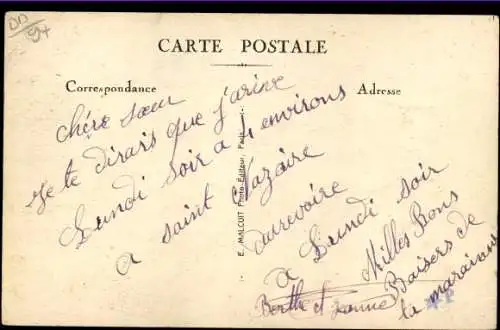 DD
94
CARTE POSTALE
Correspondance
Adresse
chére sœur
Je te dirais que j'arive
Lundi soir a 4 environs
a saint Lazaire
aurevoire
a Lundi soir
Milles Bons
Baisers de
ta maraine
Berthe et Jeanne
E. MALCUIT Photo-Editeur, Paris